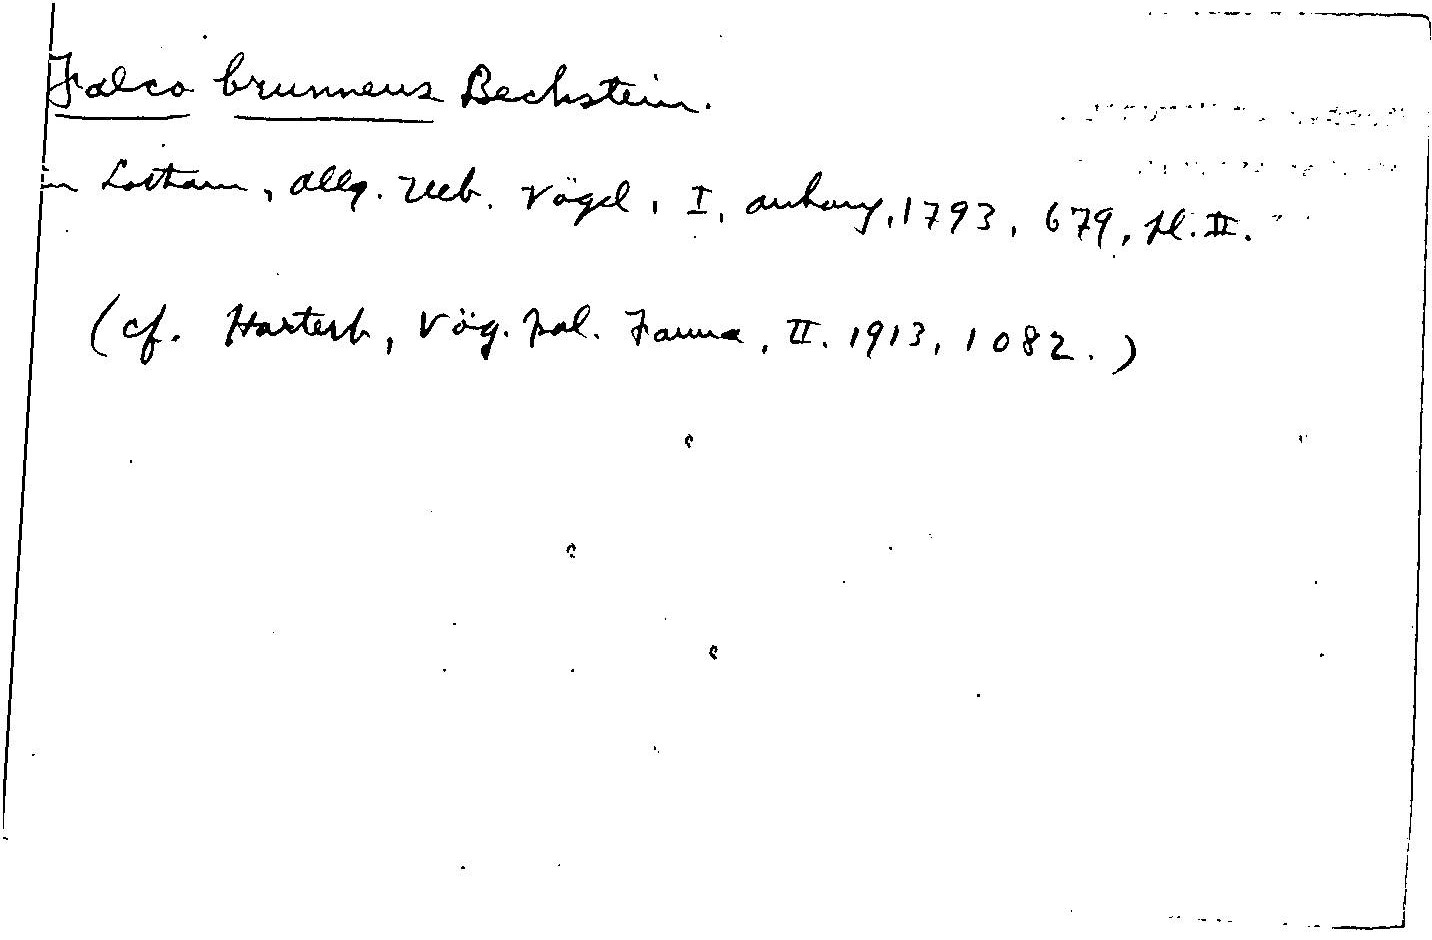 Falco brunneus Bechstein.
in Latham, Allg. Ueb. Vögel, I, anhang, 1793, 679, pl. II.
(cf. Hartert, Vög. pal. Fauna, II. 1913, 1082.)